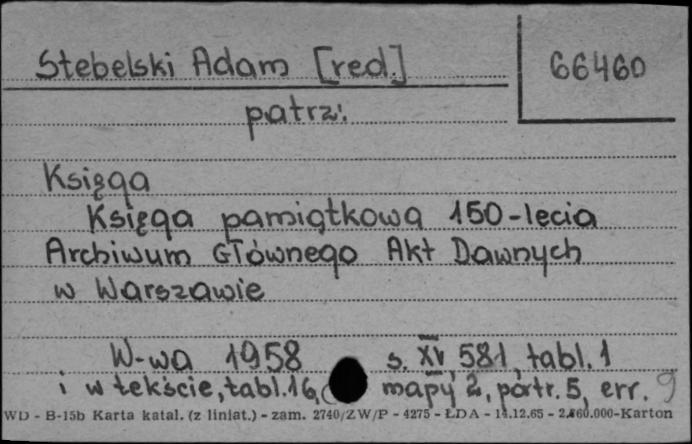 Stebelski Adam [red.]
66460
patrz:
Księga
Księga pamiątkowa 150-lecia
Archiwum Głównego Akt Dawnych
w Warszawie
W-wa 1958 s. XV, 581, tabl. 1
i w tekście, tabl. 16, mapy 2, portr. 5, err.
WD - B-15b Karta katal. (z liniat.) - zam. 2740/ZW/P - 4275 - ŁDA - 14.12.65 - 2.860.000-Karton